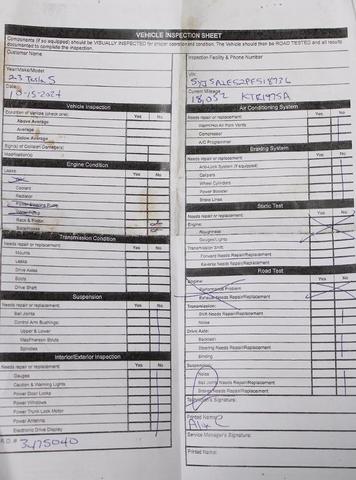 VEHICLE INSPECTION SHEET
Components (if so equipped) should be VISUALLY INSPECTED for proper operation and condition. The Vehicle should then be ROAD TESTED and all results
documented to complete the inspection.
Customer Name
Year/Make/Model
23 Tesla S
Date
Vehicle Inspection
Condition of Vehicle (check one): Yes No
Above Average
Average
Below Average
Sign(s) of Collision Damage(s)
Modification(s)
Engine Condition
Leaks: Yes No
Coolant
Radiator
Power Steering Pump
Water Pump
Rack & Pinion
Transmission Condition
Needs repair or replacement: Yes No
Mounts
Leaks
Drive Axles
Boots
Drive Shaft
Suspension
Needs repair or replacement: Yes No
Ball Joints
Control Arm Bushings:
Upper & Lower
MacPherson Struts
Spindles
Interior/Exterior Inspection
Needs repair or replacement: Yes No
Gauges
Caution & Warning Lights
Power Door Locks
Power Windows
Power Trunk Lock Motor
Power Antenna
Electronic Drive Display
R.O.# 3475040
Inspection Facility & Phone Number
VIN:
Current Mileage
18,052 KTR1975A
Air Conditioning System
Needs repair or replacement: Yes No
Compressor
A/C Programmer
Braking System
Needs repair or replacement: Yes No
Anti-Lock System (if equipped)
Calipers
Wheel Cylinders
Power Booster
Brake Lines
Static Test
Engine: Yes No
Roughness
Gauges/Lights
Transmission Shift:
Forward Needs Repair/Replacement
Reverse Needs Repair/Replacement
Road Test
Engine: Yes No
Performance Problem
Exhaust Needs Repair/Replacement
Transmission:
Shift Needs Repair/Replacement
Noise
Drive Axle:
Backlash
Steering Needs Repair/Replacement
Binding
Suspension:
Noise
Ball Joints Needs Repair/Replacement
Shocks Needs Repair/Replacement
Technician's Signature:
Printed Name:
Alix C
Service Manager's Signature:
Printed Name: